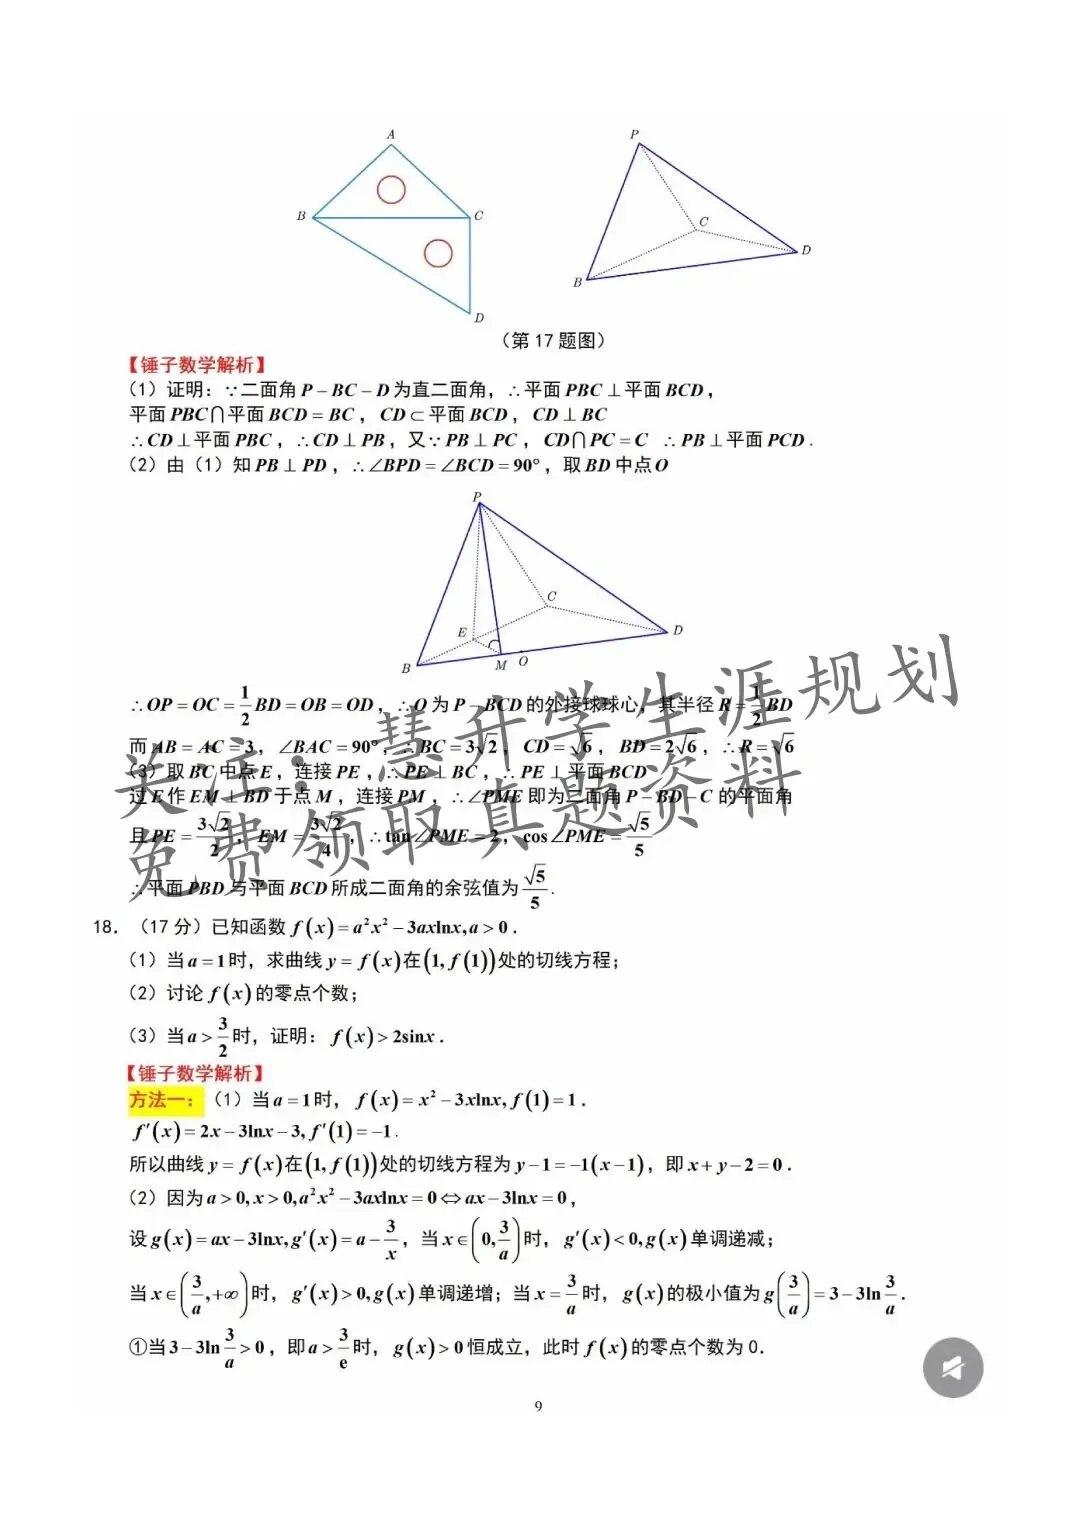 A
B
C
D
P
C
B
D
(第17题图)
【锤子数学解析】
(1)证明：∵二面角P－BC－D为直二面角，∴平面PBC⊥平面BCD，
平面PBC∩平面BCD=BC，CD⊂平面BCD，CD⊥BC
∴CD⊥平面PBC，∴CD⊥PB，又∵PB⊥PC，CD∩PC=C ∴PB⊥平面PCD.
(2)由(1)知PB⊥PD，∴∠BPD=∠BCD=90°，取BD中点O
P
C
E
D
B
M
O
∴OP=OC=1/2BD=OB=OD，∴O为P－BCD的外接球球心，其半径R=1/2BD
而AB=AC=3，∠BAC=90°，∴BC=3√2，CD=√6，BD=2√6，∴R=√6
(3)取BC中点E，连接PE，∴PE⊥BC，∴PE⊥平面BCD
过E作EM⊥BD于点M，连接PM，∴∠PME即为二面角P－BD－C的平面角
且PE=3√2/2，EM=3√2/4，∴tan∠PME=2，cos∠PME=√5/5
∴平面PBD与平面BCD所成二面角的余弦值为√5/5.
关注：慧升学生涯规划
免费领取真题资料
18.（17分）已知函数f(x)=a²x²－3axlnx,a>0.
(1)当a=1时，求曲线y=f(x)在(1,f(1))处的切线方程；
(2)讨论f(x)的零点个数；
(3)当a>3/2时，证明：f(x)>2sinx.
【锤子数学解析】
方法一：(1)当a=1时，f(x)=x²－3xlnx,f(1)=1.
f′(x)=2x－3lnx－3,f′(1)=－1.
所以曲线y=f(x)在(1,f(1))处的切线方程为y－1=－1(x－1)，即x+y－2=0.
(2)因为a>0,x>0,a²x²－3axlnx=0⇔ax－3lnx=0，
设g(x)=ax－3lnx,g′(x)=a－3/x，当x∈(0,3/a)时，g′(x)<0,g(x)单调递减；
当x∈(3/a,+∞)时，g′(x)>0,g(x)单调递增；当x=3/a时，g(x)的极小值为g(3/a)=3－3ln3/a.
①当3－3ln3/a>0，即a>3/e时，g(x)>0恒成立，此时f(x)的零点个数为0.
9